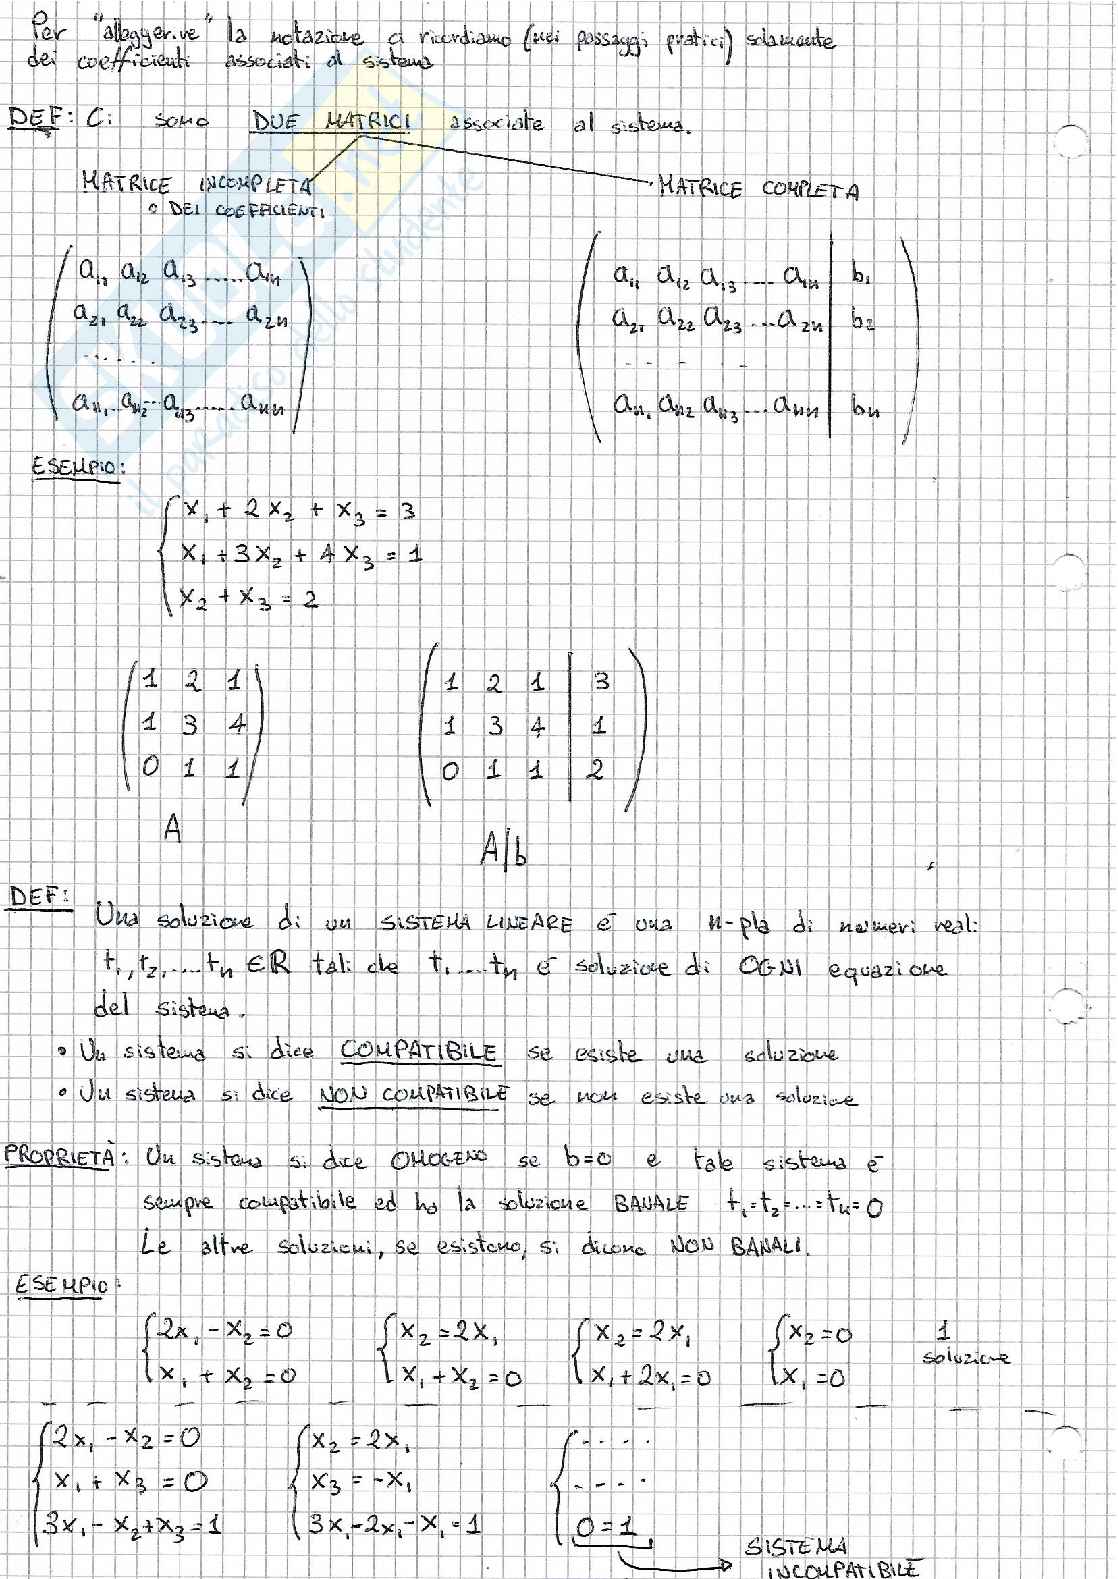 Per "alleggerire" la notazione ci ricordiamo (nei passaggi pratici) solamente
dei coefficienti associati al sistema
DEF: Ci sono DUE MATRICI associate al sistema.
MATRICE INCOMPLETA
o DEI COEFFICIENTI
MATRICE COMPLETA
a₁₁ a₁₂ a₁₃ ..... a₁ₙ
a₂₁ a₂₂ a₂₃ .... a₂ₙ
. . . . . .
aₙ₁ aₙ₂ aₙ₃ ..... aₙₙ
a₁₁ a₁₂ a₁₃ .... a₁ₙ | b₁
a₂₁ a₂₂ a₂₃ ... a₂ₙ | b₂
- - - -
aₙ₁ aₙ₂ aₙ₃ ... aₙₙ | bₙ
ESEMPIO:
x₁ + 2x₂ + x₃ = 3
x₁ + 3x₂ + 4x₃ = 1
x₂ + x₃ = 2
1 2 1
1 3 4
0 1 1
A
1 2 1 | 3
1 3 4 | 1
0 1 1 | 2
A/b
DEF: Una soluzione di un SISTEMA LINEARE è una n-pla di numeri reali
t₁, t₂, .... tₙ ∈ ℝ tali che t₁ .... tₙ è soluzione di OGNI equazione
del sistema.
• Un sistema si dice COMPATIBILE se esiste una soluzione
• Un sistema si dice NON COMPATIBILE se non esiste una soluzione
PROPRIETÀ: Un sistema si dice OMOGENO se b=0 e tale sistema è
sempre compatibile ed ha la soluzione BANALE t₁=t₂=...=tₙ=0
Le altre soluzioni, se esistono, si dicono NON BANALI.
ESEMPIO:
2x₁ - x₂ = 0
x₁ + x₂ = 0
x₂ = 2x₁
x₁ + x₂ = 0
x₂ = 2x₁
x₁ + 2x₁ = 0
x₂ = 0
x₁ = 0
1
soluzione
2x₁ - x₂ = 0
x₁ + x₃ = 0
3x₁ - x₂ + x₃ = 1
x₂ = 2x₁
x₃ = -x₁
3x₁ - 2x₁ - x₁ = 1
- - - -
- - - -
0 = 1
SISTEMA
INCOMPATIBILE